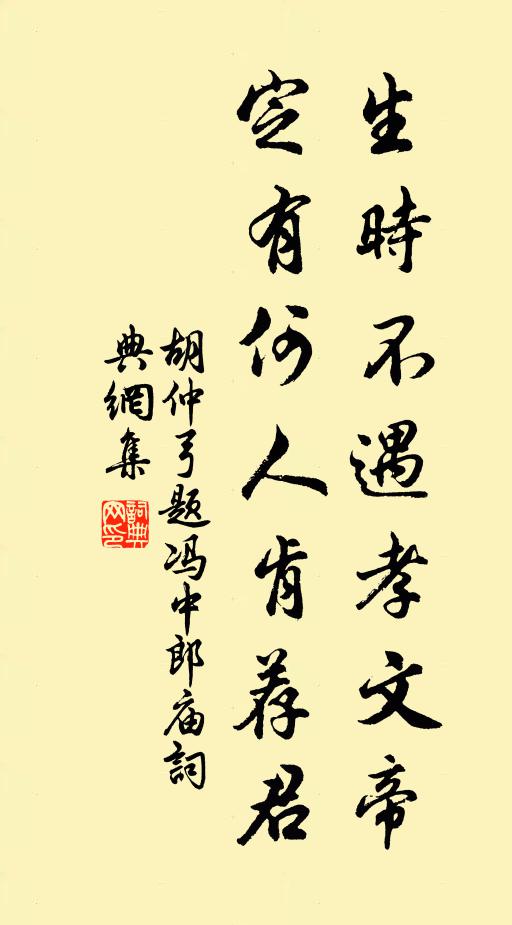 生時不遇孝文帝
定有何人肯荐君
胡仲弓题冯中郎庙詞
典網集
詞典网印